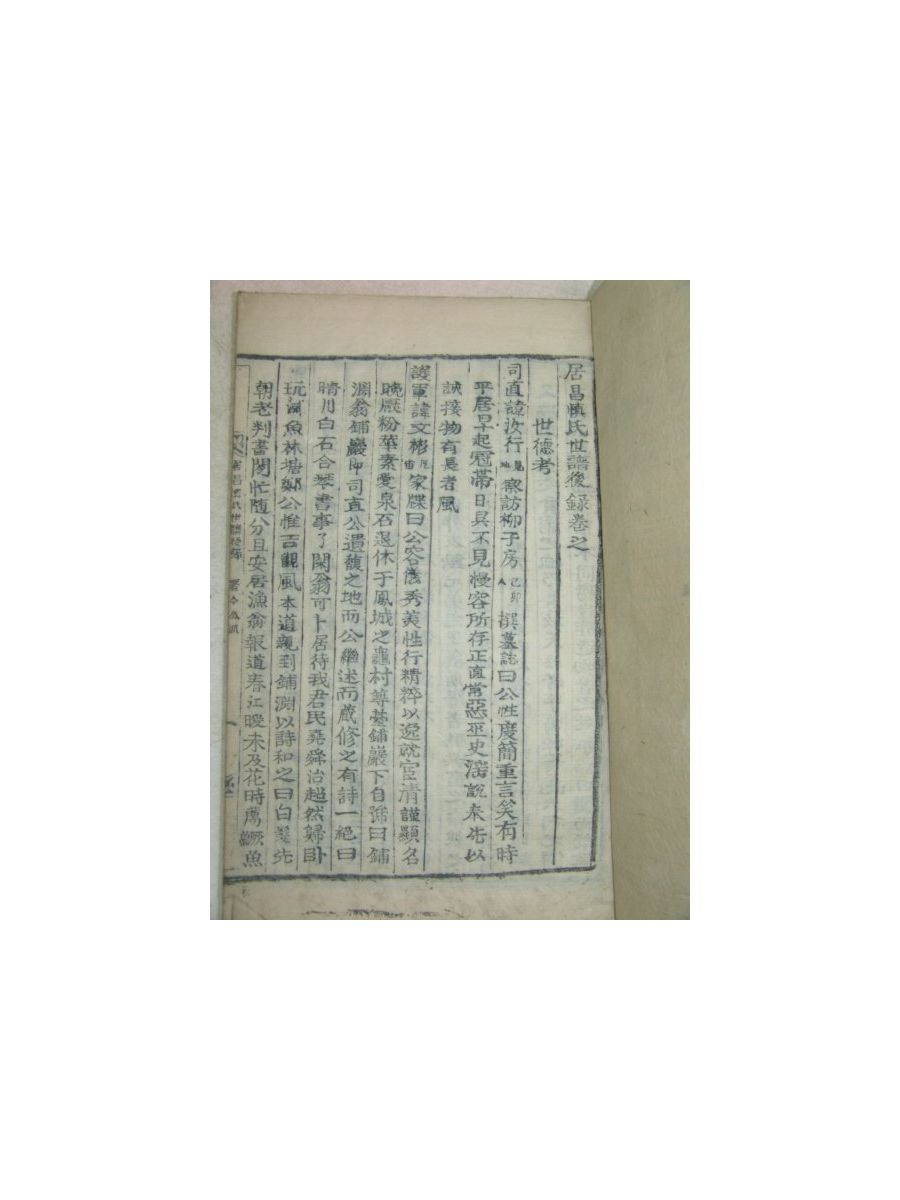 居昌愼氏世譜後錄卷之
世德考
司直諱汝行 察訪柳子房 己卯人 撰墓誌曰公性度簡重言笑有時
平居早起冠帶日具不見慢容所存正直常惡巫史謠說奉先以
誠接物有長者風
護軍諱文彬 家牒曰公容儀秀美性行精粹以逸就宦清謹顯名
晚厭粉華素愛泉石退休于鳳城之龜村築臺鋪巖下自號曰鋪
淵翁鋪巖即司直公遺馥之地而公繼述而藏修之有詩一絕曰
晴川白石合琴書事了閑翁可卜居待我君民堯舜治超然歸臥
玩淵魚林塘鄭公惟吉觀風本道親到鋪淵以詩和之曰白髮先
朝老判書閑忙隨分且安居漁翁報道春江暖未及花時薦鱖魚